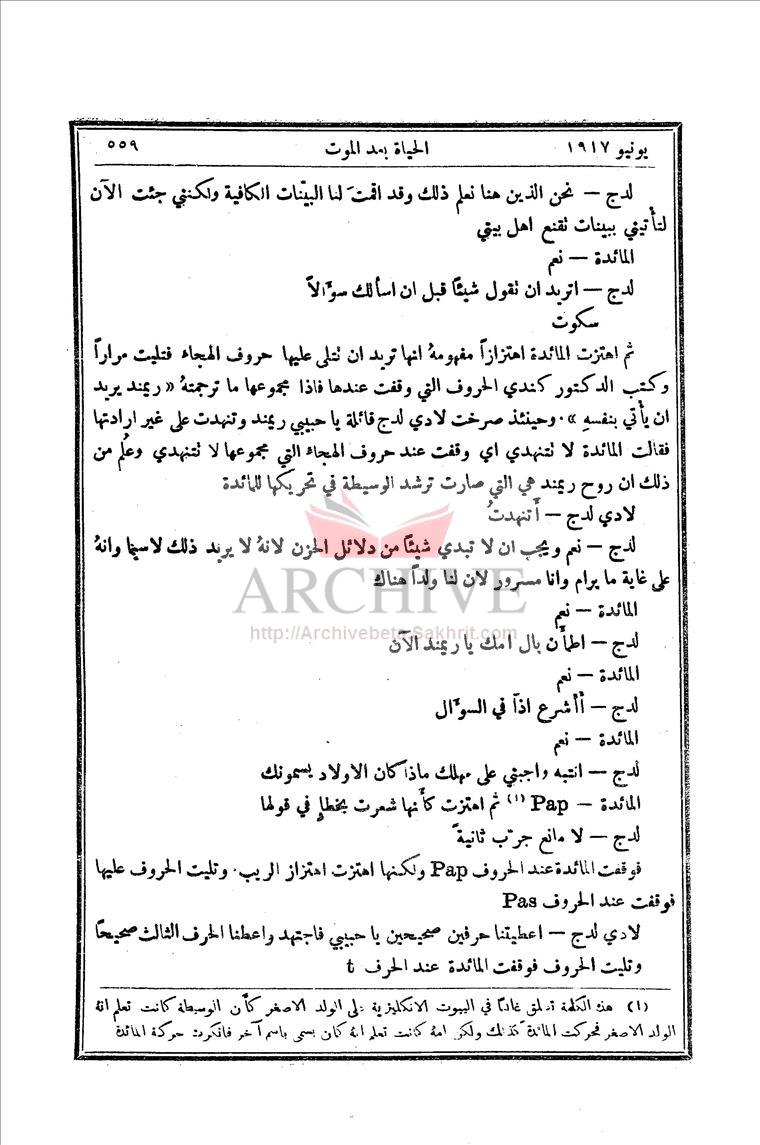 يونيو ١٩١٧ الحياة بعد الموت ٥٥٩
لدج — نحن الذين هنا نعلم ذلك وقد اقمتَ لنا البيّنات الكافية ولكنني جئت الآن
لتأتيني ببينات تقنع اهل بيتي
المائدة — نعم
لدج — اتريد ان تقول شيئًا قبل ان اسألك سوٴالاً
سكوت
ثم اهتزت المائدة اهتزازاً مفهومهُ انها تريد ان تتلى عليها حروف الهجاء فتليت مراراً
وكتب الدكتور كندي الحروف التي وقفت عندها فاذا مجموعها ما ترجمتهُ « ريمند يريد
ان يأتي بنفسهِ » . وحينئذ صرخت لادي لدج قائلة يا حبيبي ريمند وتنهدت على غير ارادتها
فقالت المائدة لا تتنهدي اي وقفت عند حروف الهجاء التي مجموعها لا تتنهدي وعُلم من
ذلك ان روح ريمند هي التي صارت ترشد الوسيطة في تحريكها للمائدة
لادي لدج — أَتنهدتُ
لدج — نعم ويجب ان لا تبدي شيئًا من دلائل الحزن لانهُ لا يريد ذلك لاسيما وانهُ
على غاية ما يرام وانا مسرور لان لنا ولداً هناك
ARCHIVE
المائدة — نعم
http://Archivebeta.Sakhrit.com
لدج — اطمأن بال امك يا ريمند الآن
المائدة — نعم
لدج — أأشرع اذاً في السوٴال
المائدة — نعم
لدج — انتبه واجبني على مهلك ماذا كان الاولاد يسمونك
المائدة — Pap (١) ثم اهتزت كأنها شعرت بخطإٍ في قولها
لدج — لا مانع جرّب ثانيةً
فوقفت المائدة عند الحروف Pap ولكنها اهتزت اهتزاز الريب . وتليت الحروف عليها
فوقفت عند الحروف Pas
لادي لدج — اعطيتنا حرفين صحيحين يا حبيبي فاجتهد واعطنا الحرف الثالث صحيحًا
وتليت الحروف فوقفت المائدة عند الحرف t
(١) هذه الكلمة تطلق غالبًا في البيوت الانكليزية على الولد الاصغر كأن الوسيطة كانت تعلم انه
الولد الاصغر فحركت المائدة كذلك ولكن امهُ كانت تعلم انه كان يسمى باسم آخر فانكرت حركة المائدة